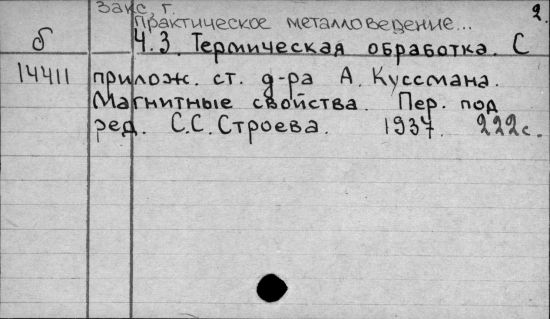 Закс, г.
2.
Практическое металловедение...
б
Ч.3. Термическая обработка. С
14411
прилож. ст. д-ра А. Куссмана.
Магнитные свойства. Пер. под
ред. С.С. Строева. 1937. 222с.